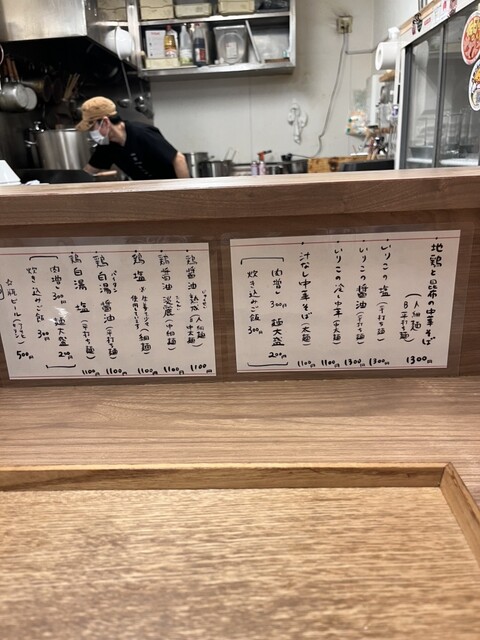 地鶏と昆布の中華そば
(A 細麺
B 平打ち麺)
1300円
いりこの塩(平打ち麺) 1300円
いりこの醤油(平打ち麺) 1300円
いりこの冷し中華(平大麺) 1100円
汁なし中華そば(太麺) 1100円
肉増 300円 麺大盛 200円
炊き込みご飯 300円
鶏醤油 熟成(A細麺 中太麺) 1100円
鶏醤油 淡麗(中細麺) 1100円
鶏塩 使用しています(細麺) 1100円
パイタン
鶏白湯 醤油(平打ち麺) 1100円
鶏白湯 塩(平打ち麺) 1100円
肉増 300円 麺大盛 200円
炊き込みご飯 300円
瓶ビール 500円